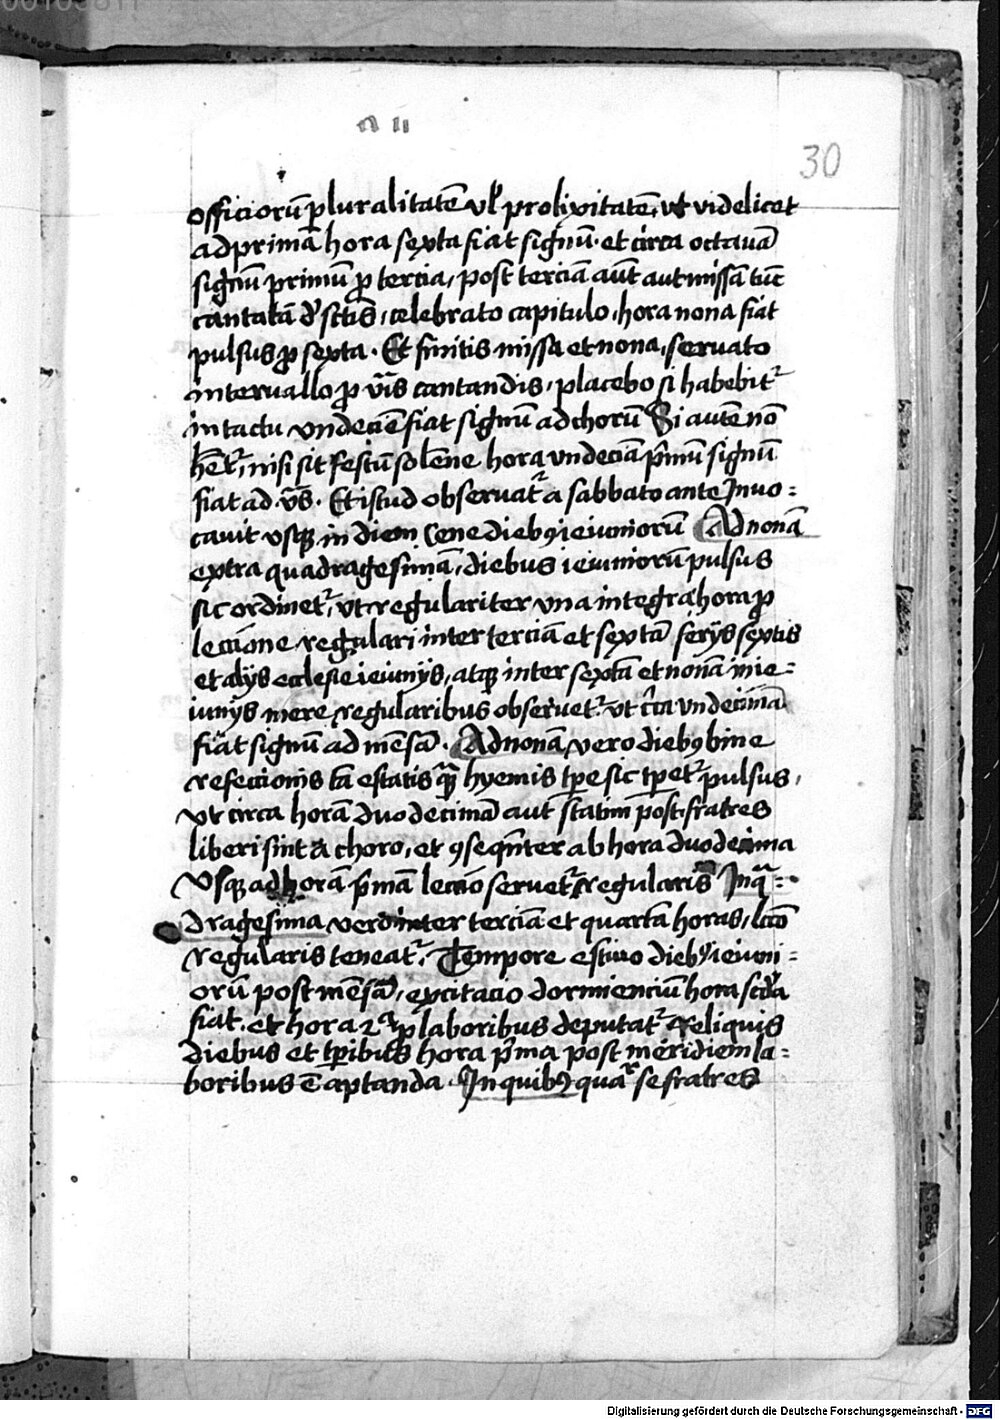 a ii
30
officiorū ꝑluralitatē vl' prolixitatē, vt videlicet
ad primā hora sexta fiat signū. et circa octauā
signū primū ꝓ tercia, post terciā aūt aut missā tūc
cantatā d' sctīs, celebrato capitulo, hora nona fiat
pulsus ꝓ sexta. Et finitis missa et nona, seruato
interuallo ꝓ vīs cantandis, placebo si habebit᷑
in tactu vndecīe fiat signū ad chorū Si autē nō
hēt᷑, nisi sit festū solēne hora vndeciā p̄mū signū
fiat ad vs̄. Et istud obseruat᷑ a sabbato ante Inuo=
cauit vsqꝫ in diem Cene diebꝰ ieiuniorū Ad nonā
extra quadragesimā, diebus ieiuniorū pulsus
sic ordinet᷑, vt regulariter vna integra hora ꝓ
leccione regulari inter terciā et sextā ferijs sextis
et alijs ecclesie ieiunijs, atqꝫ inter sextā et nonā in ie=
iunijs mere regularibus obseruet᷑ vt cīca vndecimā
fiat signū ad mēsā. Ad nonam vero diebꝰ bine
refeccionis tā estatis qꝫ hyemis tp̄e sic tp̄et᷑ pulsus,
vt circa horā duodecimā aut statim post, fratres
liberi sint a choro, et ꝯseqn̄ter ab hora duodecima
vsqꝫ ad horā p̄mā leccio seruet᷑ regularis Inqᷓ=
dragesima vero inter terciā et quartā horas, lccō
regularis teneat᷑. Tempore estiuo diebꝰ ieiuni=
orū post mēsā, excitacio dormienciū hora scd̄a
fiat. et hora 2ª ꝑ laboribus deputat᷑ Reliquis
diebus et tp̄ibus hora p̄ma post meridiem la=
boribus ē aptanda. In quibꝰ quā se fratres
Digitalisierung gefördert durch die Deutsche Forschungsgemeinschaft - DFG